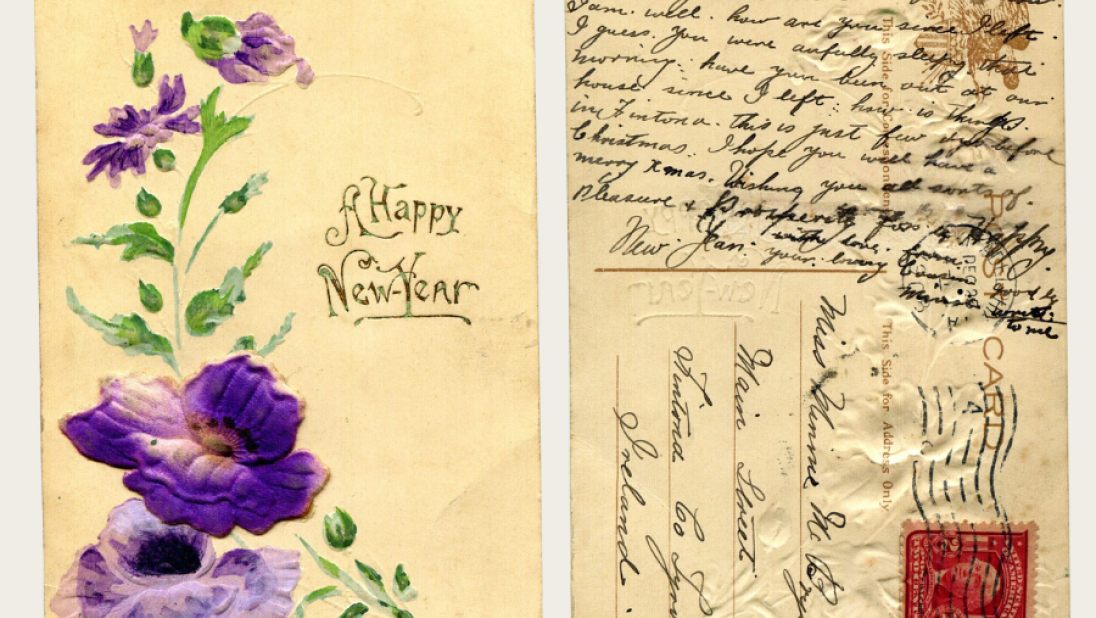 A Happy
New-Year
I am. well. how are you since I left.
I guess. you were awfully sleepy that
morning. have you been out at our
house since I left. how is things.
in Fintona. this is just few days before
Christmas. I hope you will have a
merry xmas. Wishing you all sorts of.
Pleasure & Prosperity for a Happy.
New. Year. your. loving
with love. from
Cousin
Minnie
good by
write
to me
This Side for Correspondence
POST CARD
This Side for Address Only
DEC 2
Miss Minnie Mc
Main Street
Fintona Co
Ireland.